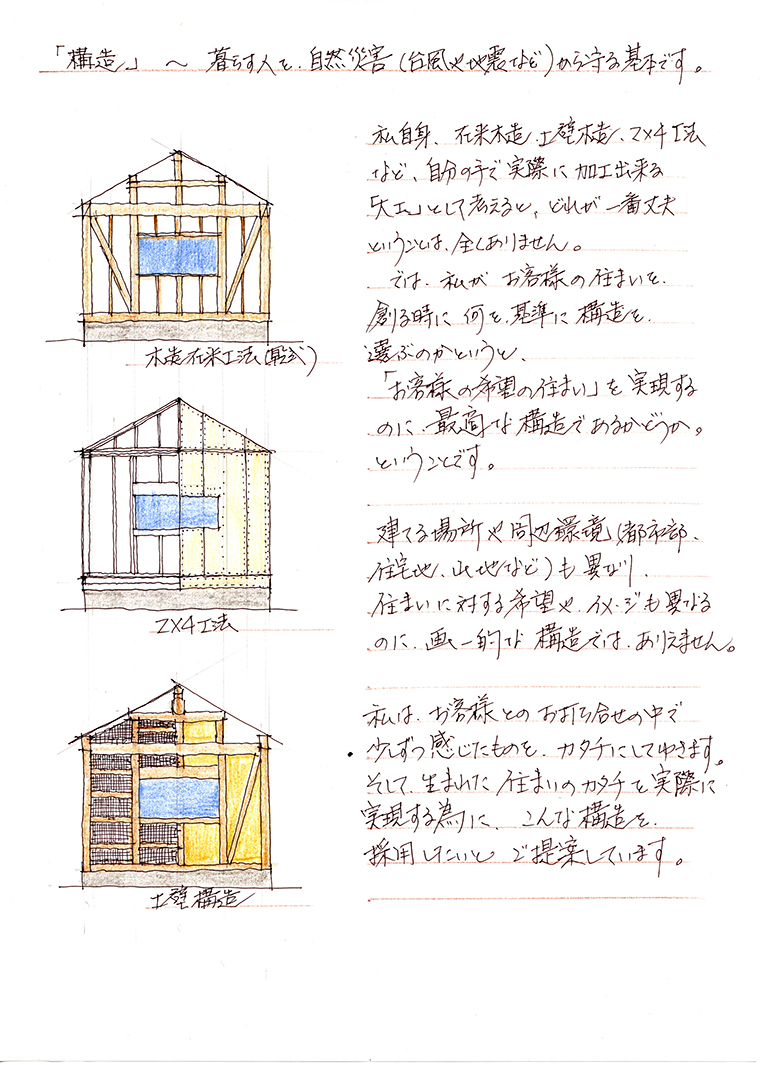 「構造」 ～ 暮らす人を、自然災害(台風や地震など)から守る基本です。
私自身、在来木造、土壁木造、2×4工法
など、自分の手で実際に加工出来る
「大工」として考えると、どれが一番丈夫
ということは、全くありません。
では、私が お客様の住まいを、
創る時に 何を、基準に 構造を、
選ぶのかというと、
「お客様の希望の住まい」を実現する
のに 最適な構造であるかどうか。
ということです。
建てる場所や周辺環境(都市部、
住宅地、山地など)も異なり、
住まいに対する希望や、イメージも異なる
のに、画一的な 構造では、ありえません。
私は、お客様との お打ち合せの中で
少しずつ感じたものを、カタチにしてゆきます。
そして、生まれた 住まいのカタチを 実際に
実現する為に、こんな構造を、
採用したいと ご提案しています。
木造在来工法(乾式)
2×4工法
土壁構造